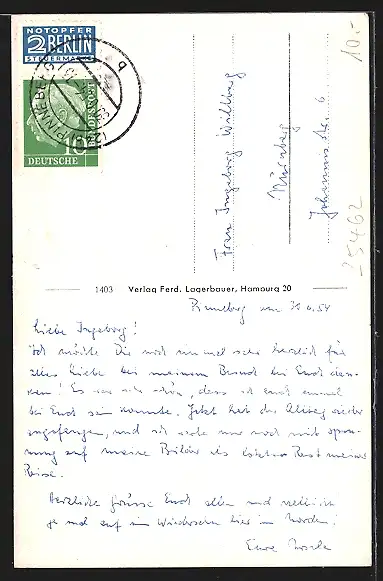 NOTOPFER
2 BERLIN
STEUERMARKE
PINNEBERG
DEUTSCHE
BUNDESPOST
10
10.-
Frau Ingeborg Willberg
Nürnberg
Johannis str. 6
35462
1403 Verlag Ferd. Lagerbauer, Hamburg 20
Pinneberg, 6.54
Liebe Ingeborg!
Ich möchte Dir noch einmal sehr herzlich für
alle Liebe bei meinem Besuch bei Euch dan-
ken! Es war sehr schön, dass ich Euch einmal
bei Euch sein konnte. Jetzt hat der Alltag wieder
angefangen, und ich warte nur noch mit span-
nung auf meine Bilder als letzten Rest meiner
Reise.
Herzliche Grüsse Euch allen und vielleicht
ja mal auf ein Wiedersehn hier im Norden!
Eure